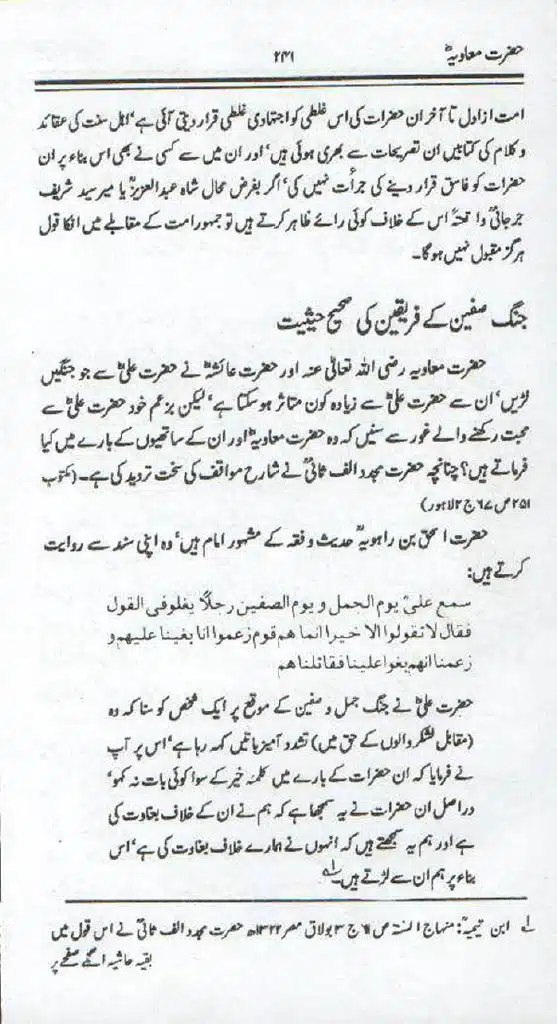 حضرت معاویہؓ
۲۴۱
امت از اول تا آخر ان حضرات کی اس غلطی کو اجتہادی غلطی قرار دیتی آئی ہے، اہل سنت کی عقائد
و کلام کی کتابیں ان تصریحات سے بھری ہوئی ہیں، اور ان میں سے کسی نے بھی اس بناء پر ان
حضرات کو فاسق قرار دینے کی جرأت نہیں کی، اگر بفرض محال شاہ عبدالعزیزؒ یا میر سید شریف
جرجانیؒ واقعۃً اس کے خلاف کوئی رائے ظاہر کرتے ہیں تو جمہور امت کے مقابلے میں انکا قول
ہرگز مقبول نہیں ہوگا۔
جنگ صفین کے فریقین کی صحیح حیثیت
حضرت معاویہ رضی اللہ تعالیٰ عنہ اور حضرت عائشہؓ نے حضرت علیؓ سے جو جنگیں
لڑیں، ان سے حضرت علیؓ سے زیادہ کون متاثر ہو سکتا ہے، لیکن بزعم خود حضرت علیؓ سے
محبت رکھنے والے غور سے سنیں کہ وہ حضرت معاویہؓ اور ان کے ساتھیوں کے بارے میں کیا
فرماتے ہیں؟ چنانچہ حضرت مجدد الف ثانیؒ نے شارح مواقف کی سخت تردید کی ہے۔ (مکتوب
۲۵۱ ص ۶۷ ج ۲ لاہور)
حضرت اسحٰق بن راہویہؒ حدیث و فقہ کے مشہور امام ہیں، وہ اپنی سند سے روایت
کرتے ہیں:
سمع علیؓ یوم الجمل و یوم الصفین رجلاً یغلو فی القول
فقال لا تقولوا الا خیرا انما هم قوم زعموا انا بغینا علیهم و
زعمنا انهم بغوا علینا فقاتلناهم
حضرت علیؓ نے جنگ جمل و صفین کے موقع پر ایک شخص کو سنا کہ وہ
(مقابل لشکر والوں کے حق میں) تشدد آمیز باتیں کہہ رہا ہے، اس پر آپ
نے فرمایا کہ ان حضرات کے بارے میں کلمۂ خیر کے سوا کوئی بات نہ کہو،
دراصل ان حضرات نے یہ سمجھا ہے کہ ہم نے ان کے خلاف بغاوت کی
ہے اور ہم یہ سمجھتے ہیں کہ انہوں نے ہمارے خلاف بغاوت کی ہے، اس
بناء پر ہم ان سے لڑتے ہیں۔ ۱؎
۱؎ ابن تیمیہؒ: منہاج السنۃ ص ۶۱ ج ۳ بولاق مصر ۱۳۲۲ھ حضرت مجدد الف ثانیؒ نے اس قول میں
بقیہ حاشیہ اگلے صفحے پر